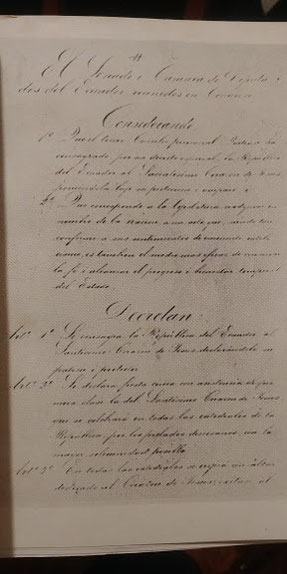 El Senado i Camara de Diputa
dos del Ecuador reunidos en Congreso
Considerando
1º Que el tercer Concilio provincial Quitense ha
consagrado por un decreto especial, la República
del Ecuador al Santísimo Corazon de Jesus
poniendola bajo su proteccion i amparo;
2º Que corresponde a la Legislatura
nombre de la Nacion
conforme a sus sentimientos de
es tambien el medio mas eficaz de conservar
la fé i alcanzar el progreso i bienestar temporal
del Estado.
Decretan
Art. 1º Se consagra la República del Ecuador al
Santísimo Corazon de Jesus declarándole su
patron i protector.
Art. 2º Se declara fiesta civica con asistencia de
primera clase la del Santísimo Corazon de Jesus
que se celebrará en todas las catedrales de la
República por los prelados diocesanos, con la
mayor solemnidad posible.
Art. 3º En todas las catedrales se erijirá un altar
dedicado al Corazon de Jesus, al